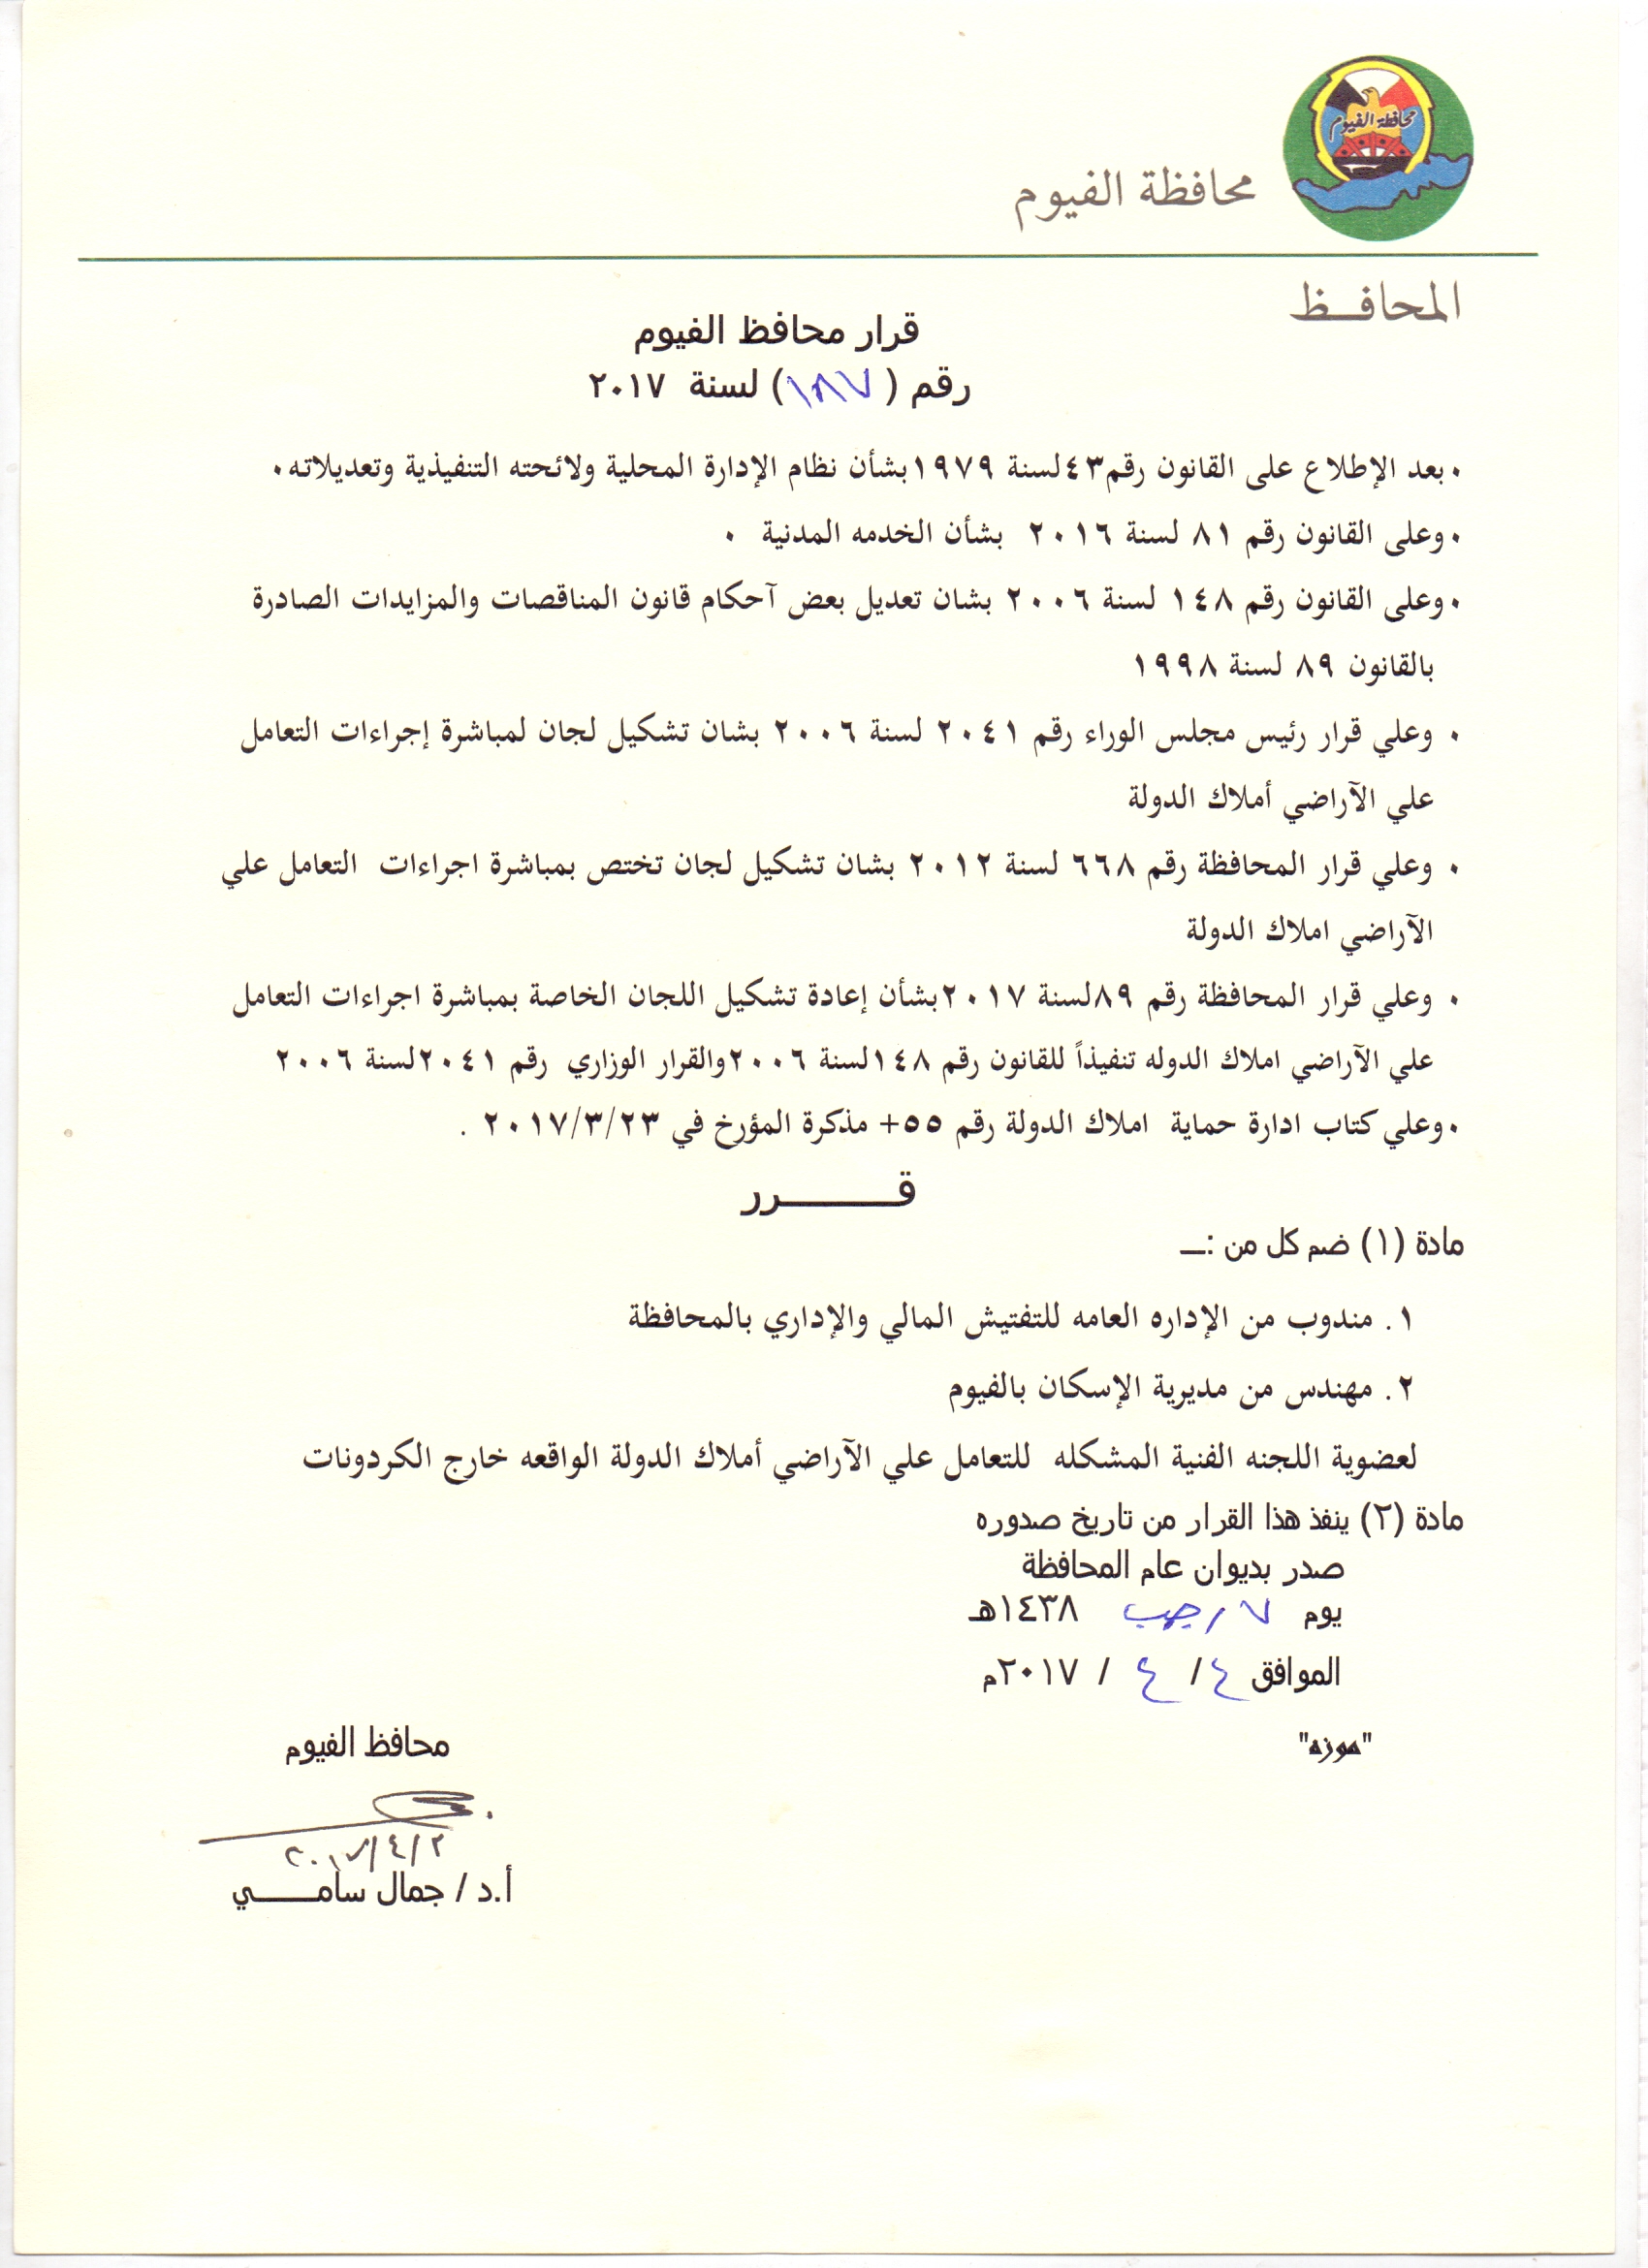 محافظة الفيوم
محافظة الفيوم
المحافــظ
قرار محافظ الفيوم
رقم ( ١٨٧ ) لسنة ٢٠١٧
٠ بعد الإطلاع على القانون رقم٤٣لسنة ١٩٧٩بشأن نظام الإدارة المحلية ولائحته التنفيذية وتعديلاته٠
٠ وعلى القانون رقم ٨١ لسنة ٢٠١٦ بشأن الخدمه المدنية ٠
٠ وعلى القانون رقم ١٤٨ لسنة ٢٠٠٦ بشان تعديل بعض آحكام قانون المناقصات والمزايدات الصادرة
بالقانون ٨٩ لسنة ١٩٩٨
٠ وعلي قرار رئيس مجلس الوراء رقم ٢٠٤١ لسنة ٢٠٠٦ بشان تشكيل لجان لمباشرة إجراءات التعامل
علي الآراضي أملاك الدولة
٠ وعلي قرار المحافظة رقم ٦٦٨ لسنة ٢٠١٢ بشان تشكيل لجان تختص بمباشرة اجراءات التعامل علي
الآراضي املاك الدولة
٠ وعلي قرار المحافظة رقم ٨٩لسنة ٢٠١٧بشأن إعادة تشكيل اللجان الخاصة بمباشرة اجراءات التعامل
علي الآراضي املاك الدوله تنفيذاً للقانون رقم ١٤٨لسنة ٢٠٠٦والقرار الوزاري رقم ٢٠٤١لسنة ٢٠٠٦
٠ وعلي كتاب ادارة حماية املاك الدولة رقم ٥٥+ مذكرة المؤرخ في ٢٠١٧/٣/٢٣ .
قــــــــرر
مادة (١) ضم كل من :ــ
١. مندوب من الإداره العامه للتفتيش المالي والإداري بالمحافظة
٢. مهندس من مديرية الإسكان بالفيوم
لعضوية اللجنه الفنية المشكله للتعامل علي الآراضي أملاك الدولة الواقعه خارج الكردونات
مادة (٢) ينفذ هذا القرار من تاريخ صدوره
صدر بديوان عام المحافظة
يوم ٧ رجب ١٤٣٨هـ
الموافق ٤ / ٤ / ٢٠١٧م
"موزه"
محافظ الفيوم
٢٠١٧/٤/٢
أ.د / جمال سامـــــــي